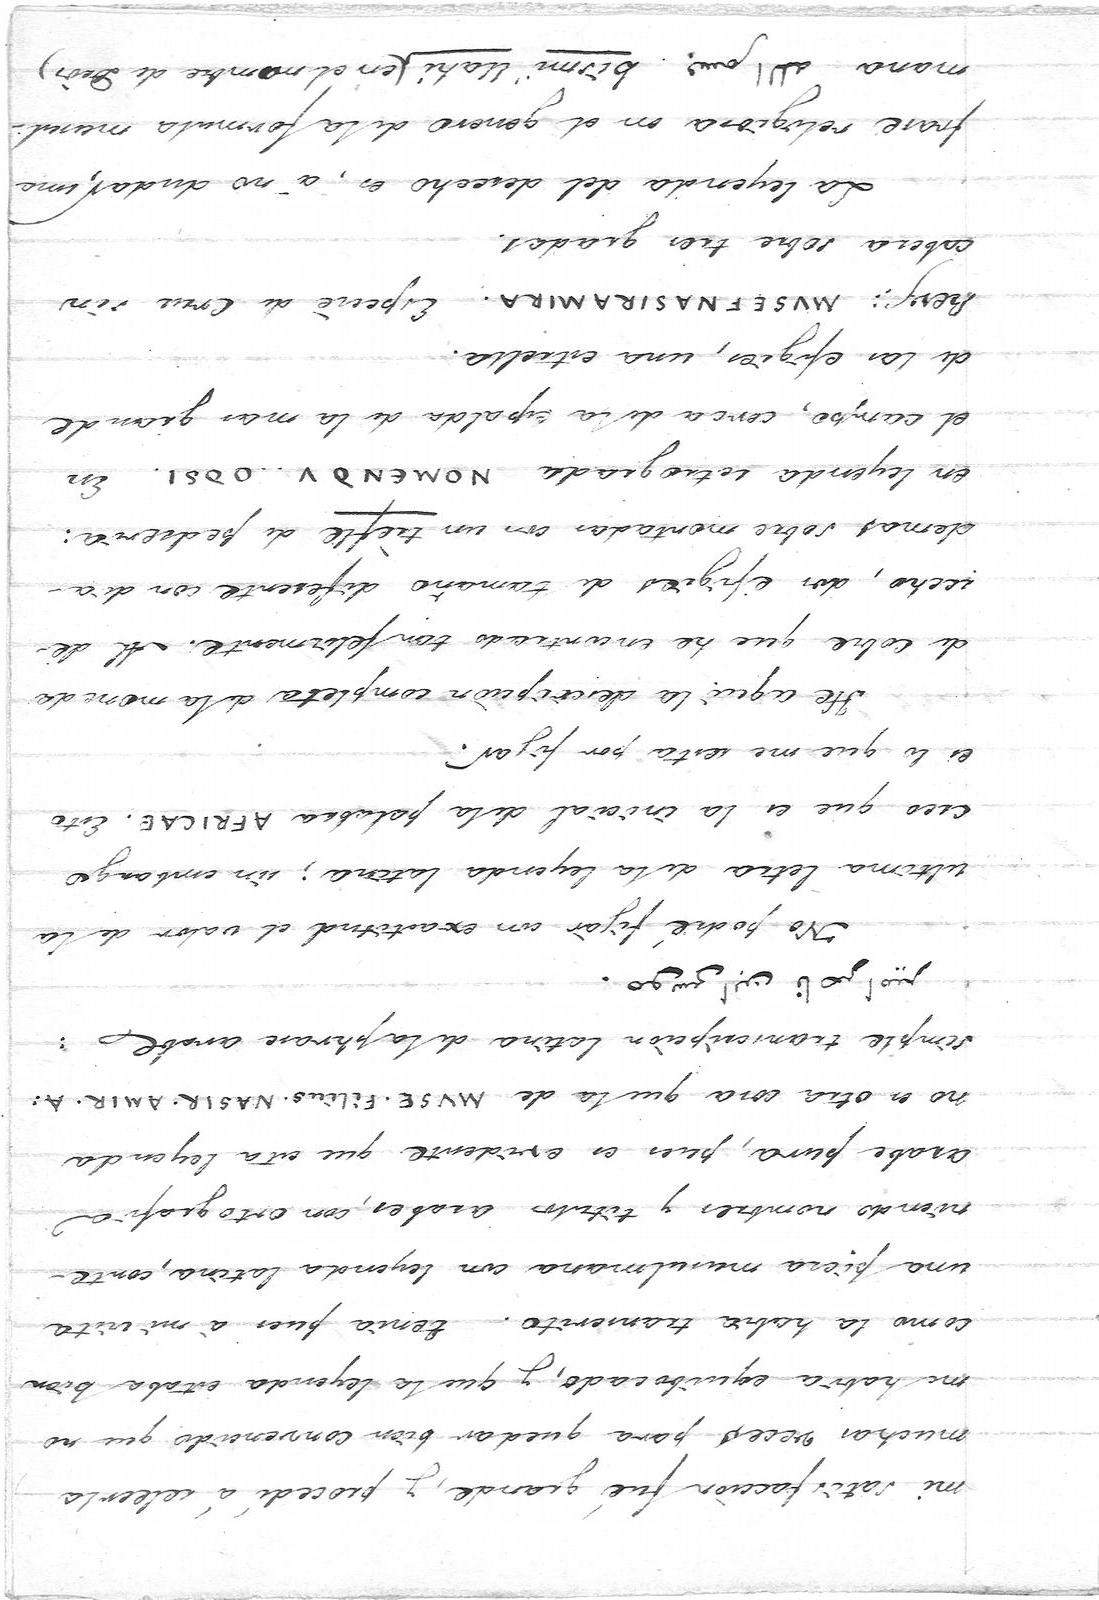 mi satisfacción fué grande, y procedí á releerla
muchas veces para quedar bien convencido que no
me habia equibocado, y que la leyenda estaba bien
como la habia transcrito. Tenia pues á mi vista
una pieza musulmana con leyenda latina, conte-
niendo nombres y titulos arabes, con ortografia
arabe pura, pues es evidente que esta leyenda
no es otra cosa que la de MVSE.Filius.NASIR.AMIR.A:
simple transcripción latina de la phrase arabe:
موسى ابن ناصر امير.
No podré fijar con exactitud el valor de la
ultima letra de la leyenda latina; sin embargo
creo que es la inicial de la palabra AFRICAE. Esto
es lo que me resta por fijar.
He aqui la descripción completa de la moneda
de cobre que he encontrado tan felizmente. Al de-
recho, dos efigies de tamaño diferente con dia-
demas sobre montadas con un trèfle de pedreria:
en leyenda retrogada NOMENDV..ODSI. En
el campo, cerca de la espalda de la mas grande
de las efigies, una estrella.
Rev: MVSEFNASIRAMIRA. Especie de Cruz sin
cabeza sobre tres gradas.
La leyenda del derecho es, á no dudar, una
frase religiosa en el genero de la formula musul-
mana بسم الله bismi llahi (en el nombre de Dios)